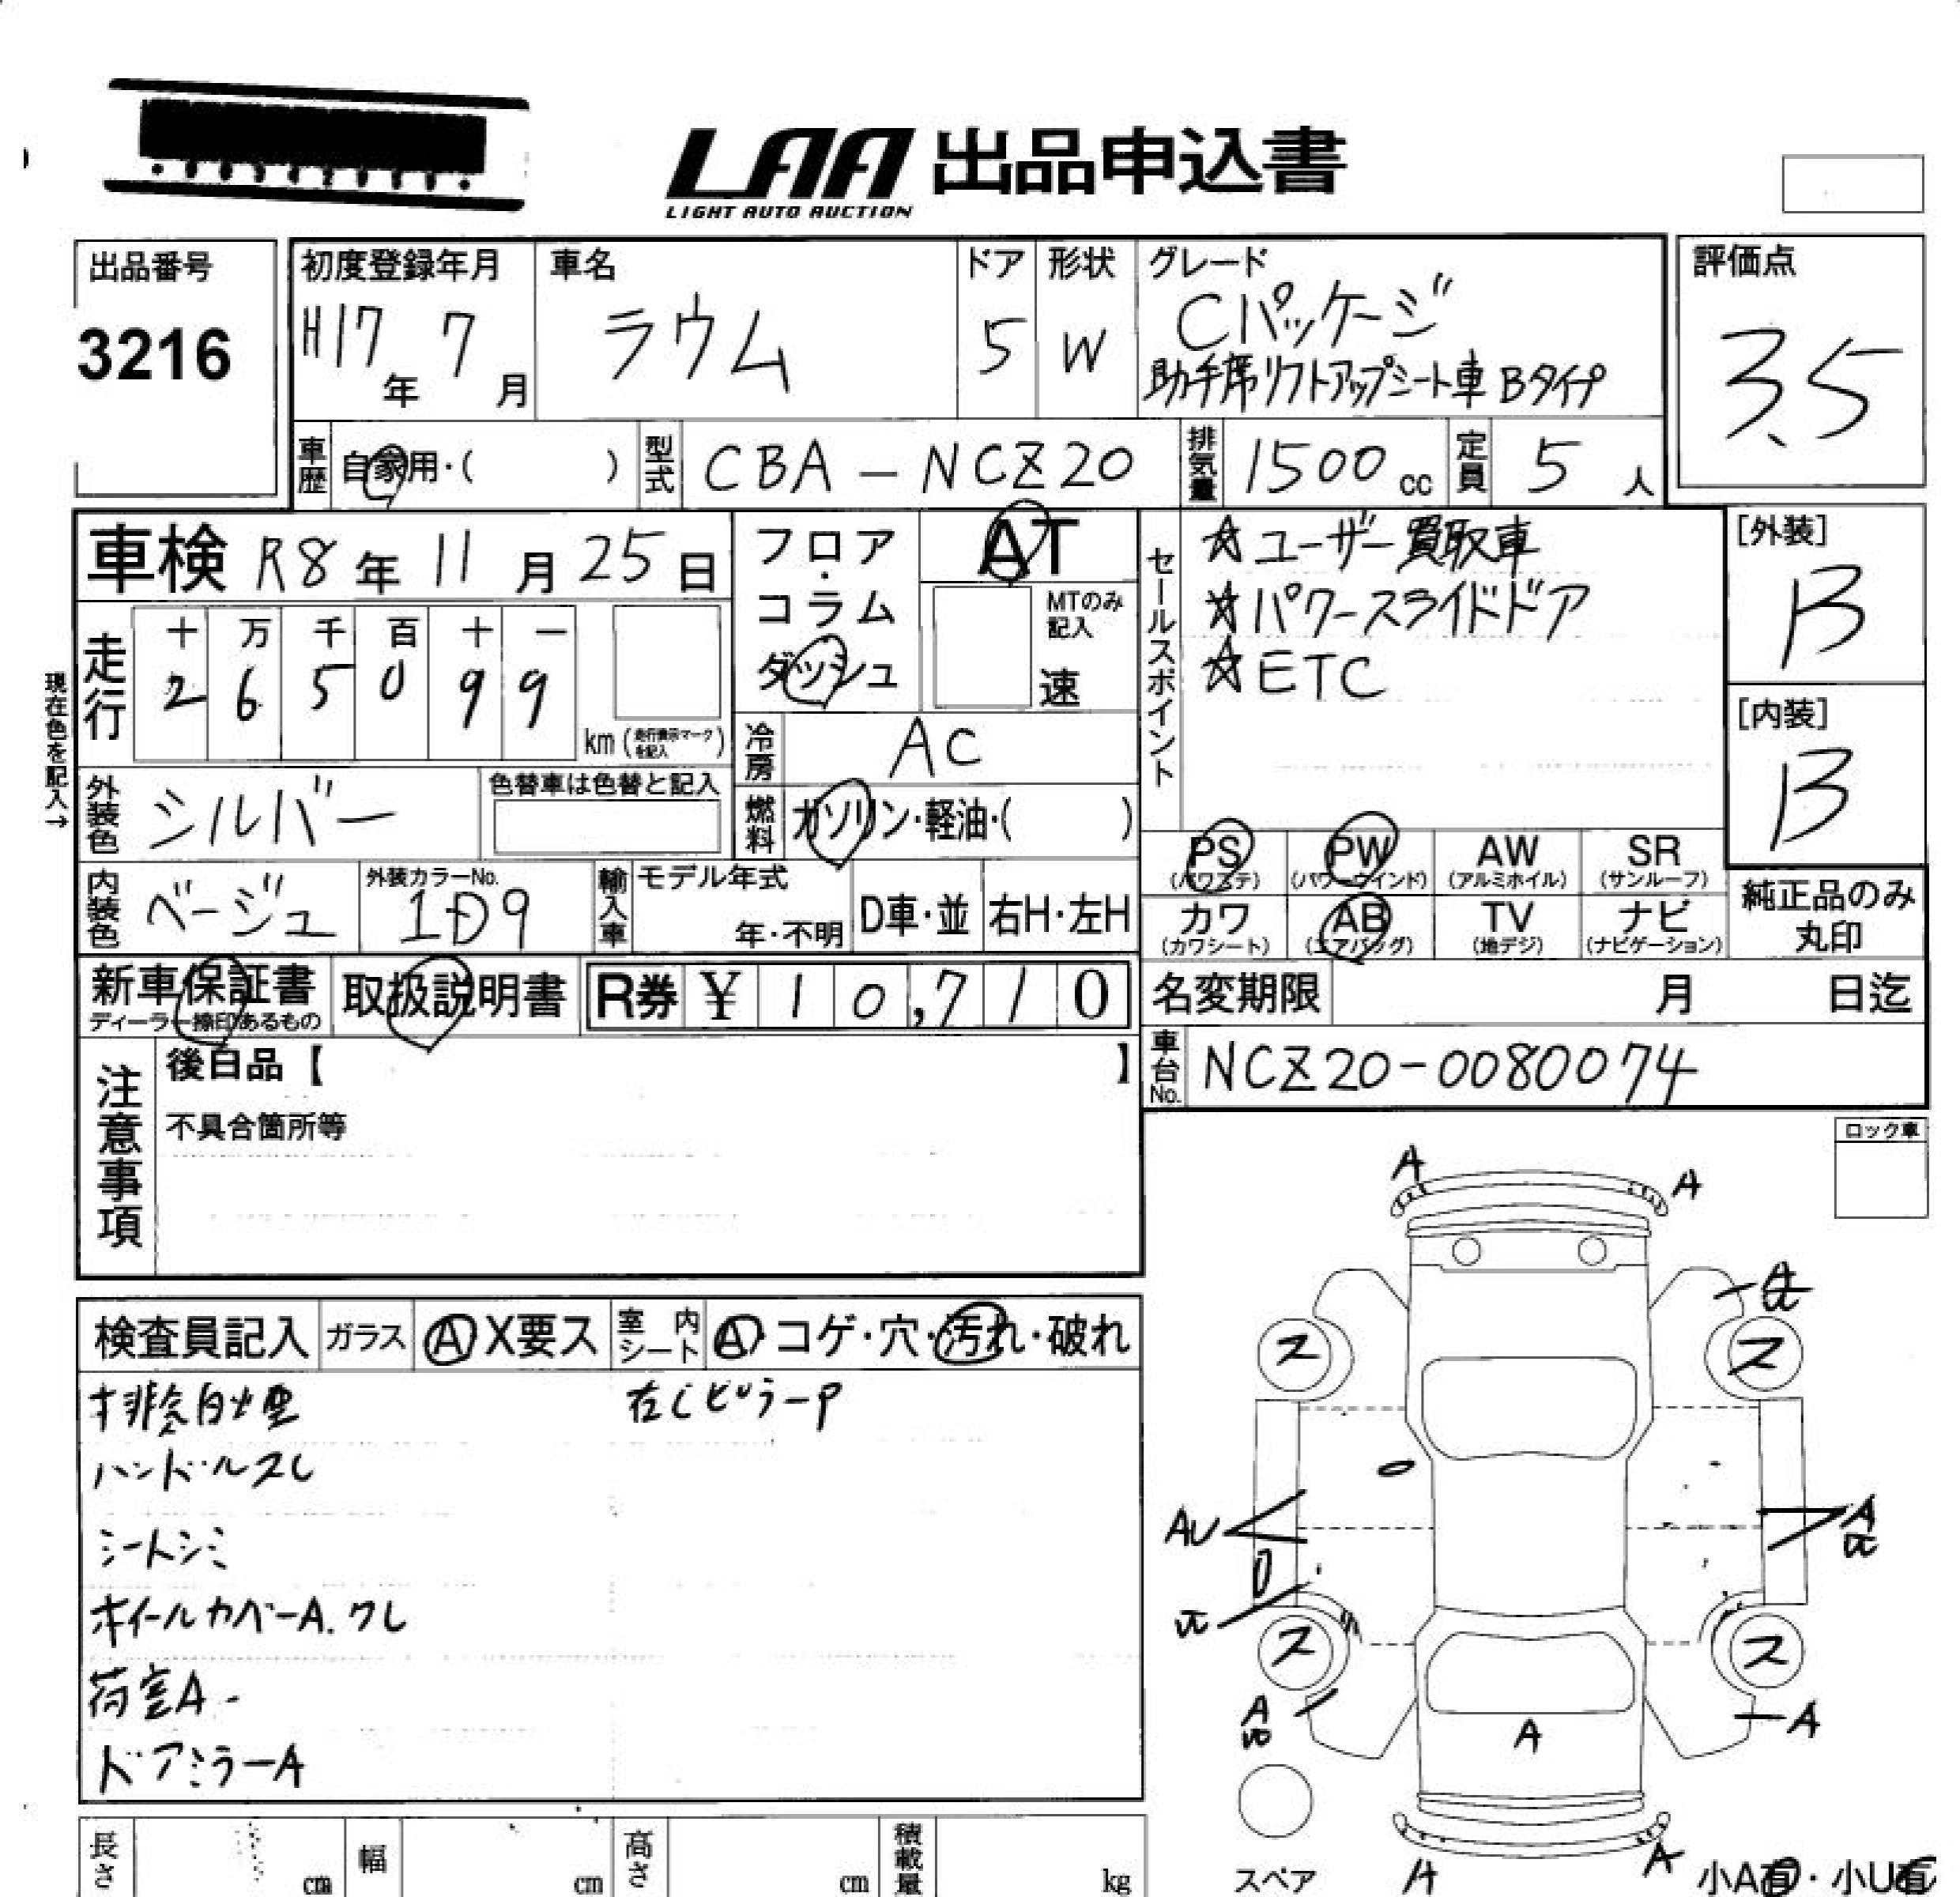 LAA 出品申込書
LIGHT AUTO AUCTION
出品番号
3216
初度登録年月
H17年 7月
車名
ラウム
ドア
5
形状
W
グレード
Cパッケージ
助手席リフトアップシート車 Bタイプ
評価点
3.5
車歴 自家用・( )
型式 CBA-NCZ20
排気量 1500 cc
定員 5 人
車検 R8年 11月 25日
走行
十 万 千 百 十 一
2 6 5 0 9 9
km (走行表示マークを記入)
現在色を記入→
フロア・コラム
ダッシュ
AT
MTのみ記入
速
冷房 AC
燃料 ガソリン・軽油・( )
セールスポイント
☆ユーザー買取車
☆パワースライドドア
☆ETC
[外装]
B
[内装]
B
外装色 シルバー
色替車は色替と記入
内装色 ベージュ
外装カラーNo.
1D9
輸入車
モデル年式
年・不明
D車・並
右H・左H
PS (パワステ)
PW (パワーウインド)
AW (アルミホイル)
SR (サンルーフ)
カワ (カワシート)
AB (エアバッグ)
TV (地デジ)
ナビ (ナビゲーション)
純正品のみ
丸印
新車保証書
ディーラー捺印あるもの
取扱説明書
R券 ¥ 10,710
名変期限 月 日迄
車台No. NCZ20-0080074
注意事項
後日品【 】
不具合箇所等
ロック車
検査員記入
ガラス
A X要ス
室内シート
A・コゲ・穴・汚れ・破れ
排気白煙
右CピラーP
ハンドルスレ
シートシミ
ホイールカバーA.ワレ
荷室A
ドアミラーA
A
A
ス
ス
AU
A
ス
ス
A
A
A
A
A
スペア
小A有・小U有
長さ cm
幅 cm
高さ cm
積載量 kg